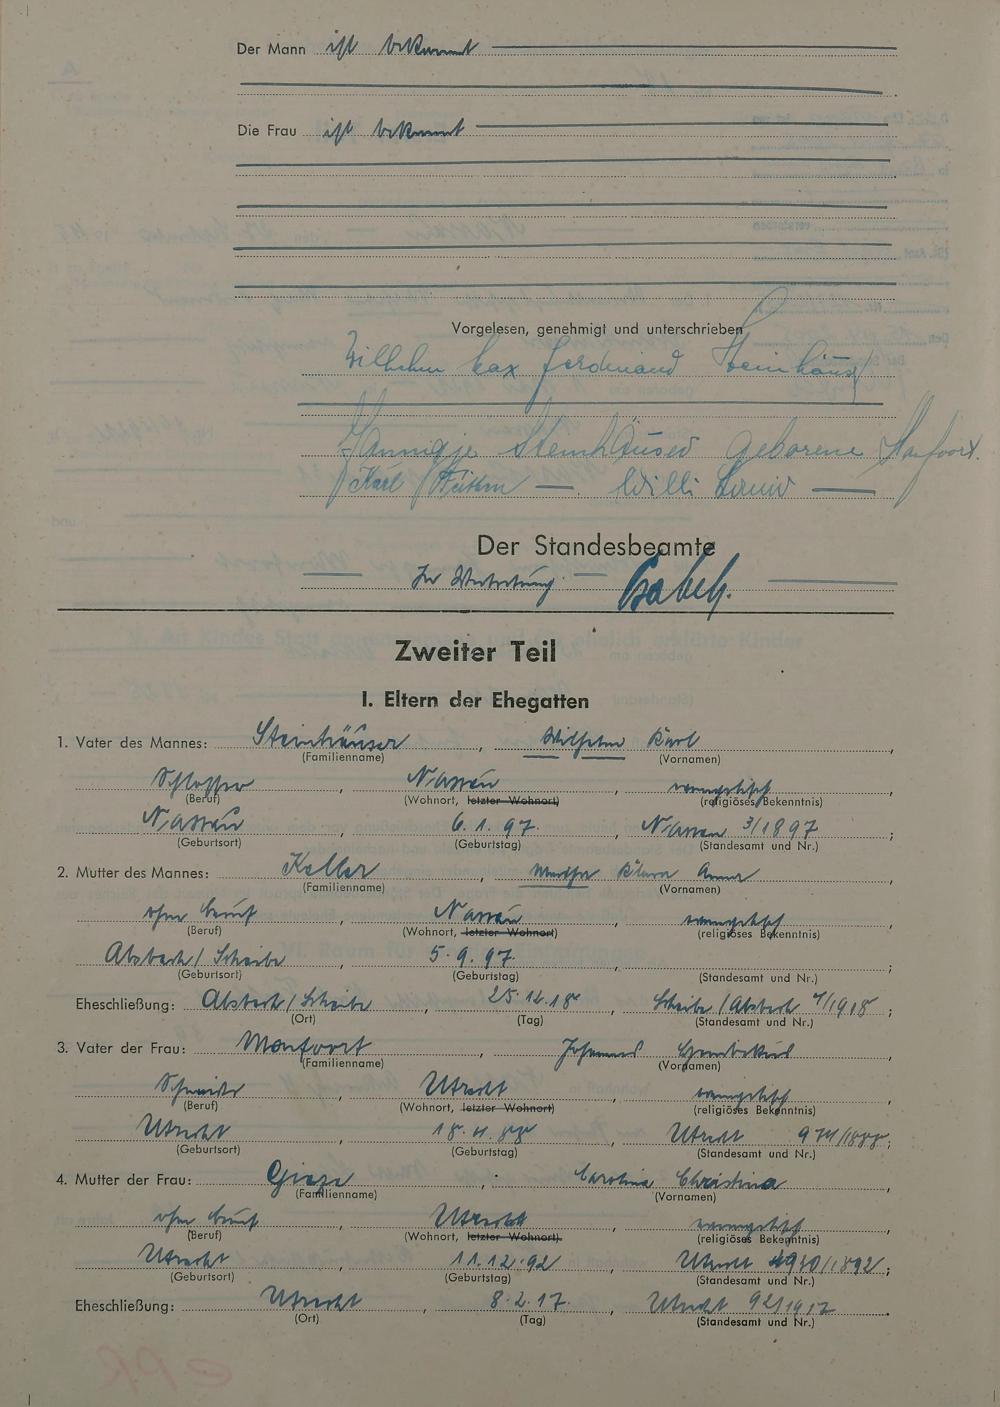 Der Mann ist bekannt
Die Frau ist bekannt
Vorgelesen, genehmigt und unterschrieben
Wilhelm Max Ferdinand Steinhäuser
Steinhäuser geborene Monfoort.
Karl Willi
Der Standesbeamte
In Vertretung
Zweiter Teil
I. Eltern der Ehegatten
1. Vater des Mannes: Steinhäuser, Wilhelm Karl,
(Familienname) (Vornamen)
Schlosser, Nassau, evangelisch,
(Beruf) (Wohnort, letzter Wohnort) (religiöses Bekenntnis)
Nassau, 6.1.97., Nassau 3/1897;
(Geburtsort) (Geburtstag) (Standesamt und Nr.)
2. Mutter des Mannes: Keller, Martha Klara Anna,
(Familienname) (Vornamen)
ohne Beruf, Nassau, evangelisch,
(Beruf) (Wohnort, letzter Wohnort) (religiöses Bekenntnis)
Absbach/Scheibe, 5.9.97.,;
(Geburtsort) (Geburtstag) (Standesamt und Nr.)
Eheschließung: Absbach/Scheibe, 25.12.18, Scheibe/Absbach 7/1918;
(Ort) (Tag) (Standesamt und Nr.)
3. Vater der Frau: Monfoort, Johannes,
(Familienname) (Vornamen)
Schmied, Utrecht, evangelisch,
(Beruf) (Wohnort, letzter Wohnort) (religiöses Bekenntnis)
Utrecht, 18.11.88, Utrecht /1888;
(Geburtsort) (Geburtstag) (Standesamt und Nr.)
4. Mutter der Frau: Carolina Christina,
(Familienname) (Vornamen)
ohne Beruf, Utrecht, evangelisch,
(Beruf) (Wohnort, letzter Wohnort). (religiöses Bekenntnis)
Utrecht, 11.12.92, Utrecht /1892;
(Geburtsort) (Geburtstag) (Standesamt und Nr.)
Eheschließung: Utrecht, 8.2.17., Utrecht 92/1917
(Ort) (Tag) (Standesamt und Nr.)